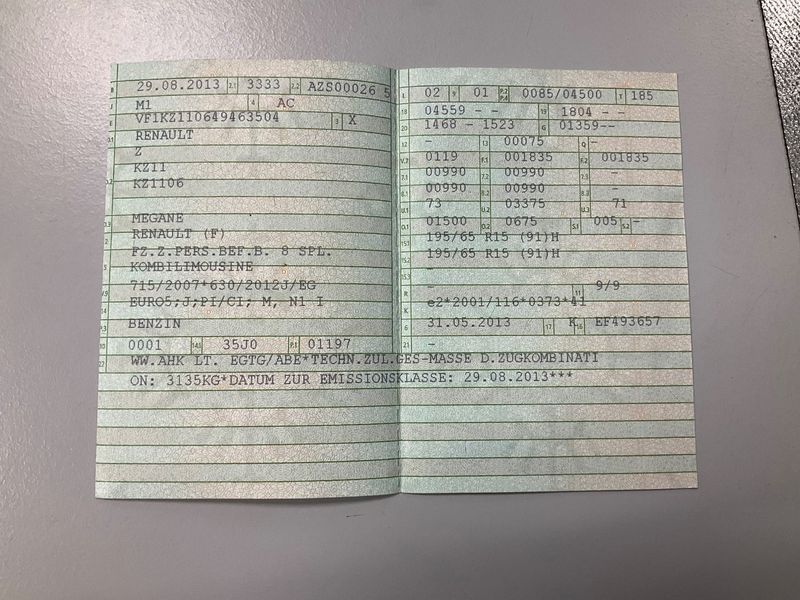 B 29.08.2013 2.1 3333 2.2 AZS00026 5
J M1 4 AC
E VF1KZ110649463504 3 X
D.1 RENAULT
Z
KZ11
D.2 KZ1106
D.3 MEGANE
2 RENAULT (F)
5 FZ.Z.PERS.BEF.B. 8 SPL.
KOMBILIMOUSINE
V.9 715/2007*630/2012J/EG
14 EURO5;J;PI/CI; M, N1 I
P.3 BENZIN
10 0001 14.1 35J0 P.1 01197
L 02 9 01 P.2 P.4 0085/04500 T 185
18 04559 - - 19 1804 - -
20 1468 - 1523 G 01359--
12 - 13 00075 Q -
V.7 0119 F.1 001835 F.2 001835
7.1 00990 7.2 00990 7.3 -
8.1 00990 8.2 00990 8.3 -
U.1 73 U.2 03375 U.3 71
O.1 01500 O.2 0675 S.1 005 S.2 -
15.1 195/65 R15 (91)H
15.2 195/65 R15 (91)H
15.3 -
R - 11 9/9
K e2*2001/116*0373*41
6 31.05.2013 17 K 16 EF493657
21 -
22 WW.AHK LT. EGTG/ABE*TECHN.ZUL.GES-MASSE D.ZUGKOMBINATI
ON: 3135KG*DATUM ZUR EMISSIONSKLASSE: 29.08.2013***